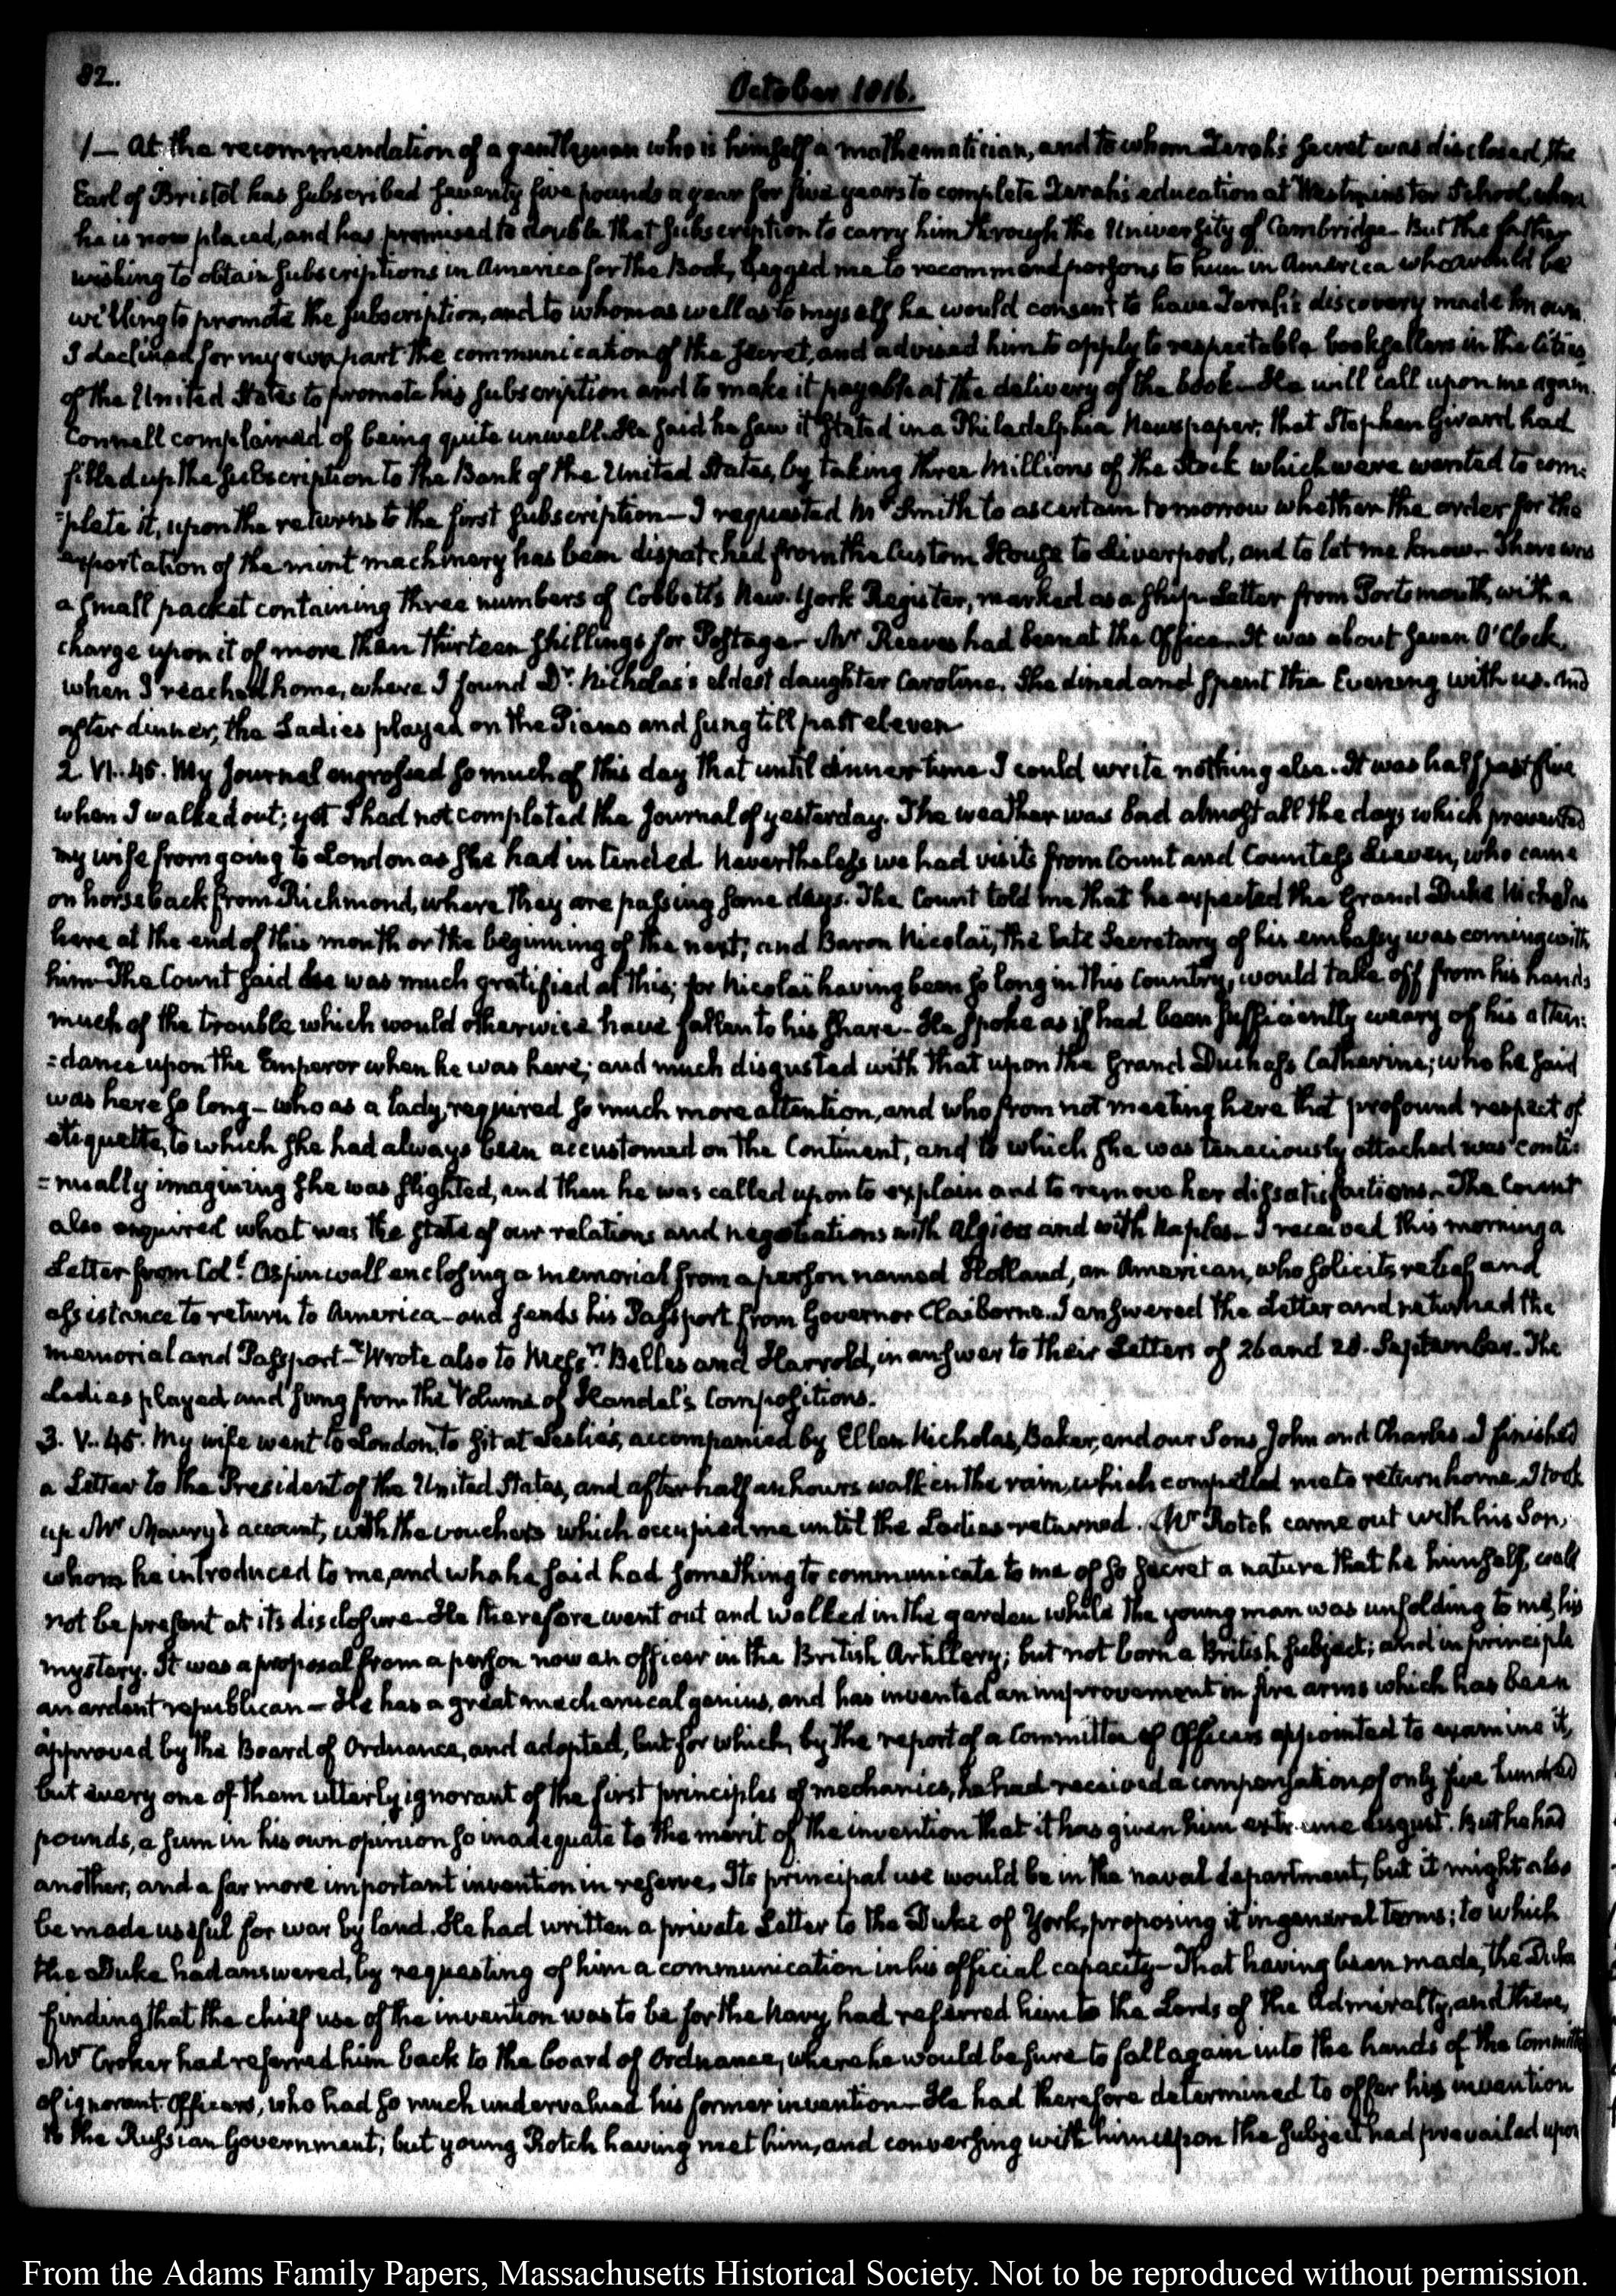 82.
October 1816.
1 — At the recommendation of a gentleman who is himself a mathematician, and to whom Zerah's secret was disclosed, the
Earl of Bristol has subscribed seventy five pounds a year for five years to complete Zerah's education at Westminster School, where
he is now placed, and has promised to double that subscription to carry him through the University of Cambridge. But the father
wishing to obtain subscriptions in America for the Book, begged me to recommend persons to him in America who would be
willing to promote the subscription, and to whom as well as to myself he would consent to have Zerah's discovery made known.
I declined for my own part the communication of the secret, and advised him to apply to respectable booksellers in the Cities
of the United States to promote his subscription and to make it payable at the delivery of the book — He will call upon me again.
Connell complained of being quite unwell. He said he saw it stated in a Philadelphia Newspaper, that Stephen Girard had
filled up the subscription to the Bank of the United States, by taking three Millions of the Stock which were wanted to com:
=plete it, upon the returns to the first subscription — I requested Mr Smith to ascertain tomorrow whether the order for the
exportation of the mint machinery has been dispatched from the Custom House to Liverpool, and to let me know. There was
a small packet containing three numbers of Cobbett's New-York Register, marked as a ship-Letter from Portsmouth, with a
charge upon it of more than thirteen shillings for Postage. Mr Reeves had been at the Office. It was about seven O'Clock,
when I reached home, where I found Dr. Nicholas's eldest daughter Caroline. She dined and spent the Evening with us. And
after dinner, the Ladies played on the Piano and sung till past eleven
2. VI..45. My Journal engrossed so much of this day that until dinner time I could write nothing else. It was half past five
when I walked out; yet I had not completed the Journal of yesterday. The weather was bad almost all the day, which prevented
my wife from going to London as she had intended. Nevertheless we had visits from Count and Countess Lieven, who came
on horseback from Richmond, where they are passing some days. The Count told me that he expected the Grand Duke Nicholas
here at the end of this month or the beginning of the next; and Baron Nicolaï, the late Secretary of his embassy was coming with
him — The Count said he was much gratified at this; for Nicolaï having been so long in this Country, would take off from his hands
much of the trouble which would otherwise have fallen to his share — He spoke as if had been sufficiently weary of his atten:
=dance upon the Emperor when he was here; and much disgusted with that upon the Grand Duchess Catherine; who he said
was here so long — who as a lady, required so much more attention, and who from not meeting here that profound respect of
etiquette, to which she had always been accustomed on the Continent, and to which she was tenaciously attached was conti:
=nually imagining she was slighted, and then he was called upon to explain and to remove her dissatisfactions. The Count
also enquired what was the state of our relations and negotiations with Algiers and with Naples — I received this morning a
Letter from Colt. Aspinwall enclosing a memorial from a person named Holland, an American, who solicits relief and
assistance to return to America — and sends his Passport from Governor Claiborne. I answered the Letter and returned the
memorial and Passport — Wrote also to Messrs Belles and Harrold, in answer to their Letters of 26 and 28. September. The
Ladies played and sung from the Volume of Handel's Compositions.
3. V..45. My wife went to London, to sit at Leslie's, accompanied by Ellen Nicholas, Baker, and our Sons, John and Charles. I finished
a Letter to the President of the United States, and after half an hours walk in the rain, which compelled me to return home, I took
up Mr Maury's account, with the vouchers which occupied me until the Ladies returned. Mr Rotch came out with his Son,
whom he introduced to me, and who he said had something to communicate to me of so secret a nature that he himself could
not be present at its disclosure. He therefore went out and walked in the garden while the young man was unfolding to me, his
mystery. It was a proposal from a person now an officer in the British Artillery; but not born a British subject; and in principle
an ardent republican — He has a great mechanical genius, and has invented an improvement in fire arms which has been
approved by the Board of Ordnance, and adopted, but for which, by the report of a Committee of Officers appointed to examine it,
but every one of them utterly ignorant of the first principles of mechanics, he had received a compensation of only five hundred
pounds, a sum in his own opinion so inadequate to the merit of the invention that it has given him extreme disgust. But he had
another, and a far more important invention in reserve. Its principal use would be in the naval department, but it might also
be made useful for war by land. He had written a private Letter to the Duke of York, proposing it in general terms; to which
the Duke had answered, by requesting of him a communication in his official capacity — That having been made, the Duke
finding that the chief use of the invention was to be for the Navy, had referred him to the Lords of the Admiralty, and there,
Mr Croker had referred him back to the board of Ordnance, where he would be sure to fall again into the hands of the Committee
of ignorant Officers, who had so much undervalued his former invention — He had therefore determined to offer his invention
to the Russian Government; but young Rotch having met him, and conversing with him upon the subject had prevailed upon
From the Adams Family Papers, Massachusetts Historical Society. Not to be reproduced without permission.